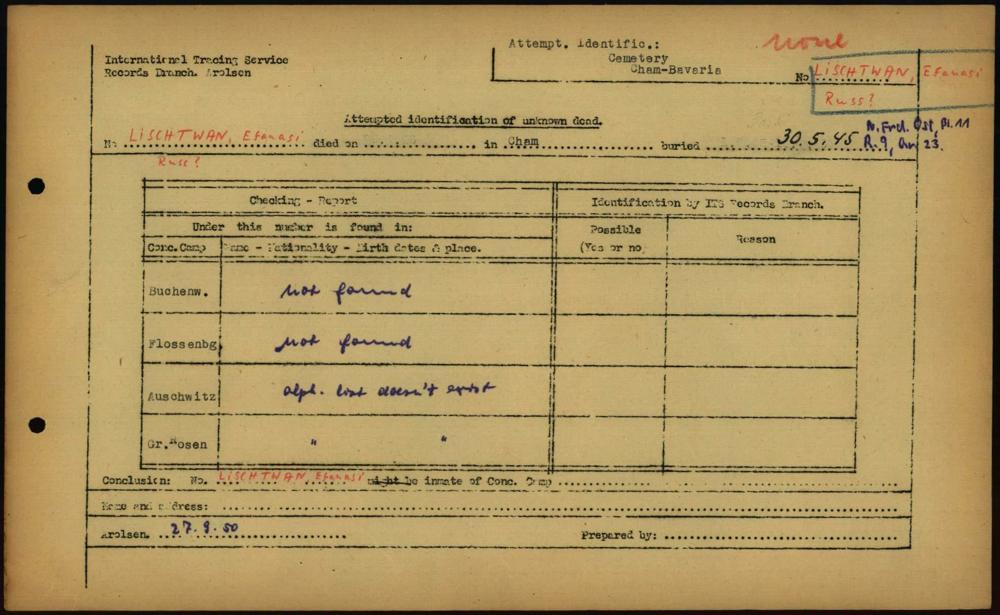 Attempt. Identific.:
none
International Tracing Service
Records Branch. Arolsen
Cemetery
Cham-Bavaria
No LISCHTWAN, Efanasi
Russ?
Attempted identification of unknown dead.
No LISCHTWAN, Efanasi died on ........ in Cham ........ buried ........ 30.5.45 N. Frdl. Ost, Bl. 11
Russ?
R. 9, Gr. 23.
Checking - Report
Identification by ITS Records Branch.
Under this number is found in:
Possible
(Yes or no
Reason
Conc.Camp
Name - Nationality - Birth dates & place.
Buchenw. not found
Flossenbg not found
Auschwitz alph. list doesn't exist
Gr.Rosen " "
Conclusion: No. LISCHTWAN, Efanasi might be inmate of Conc. Camp ........
Name and address: ........
Arolsen. 27.9.50
Prepared by: ........